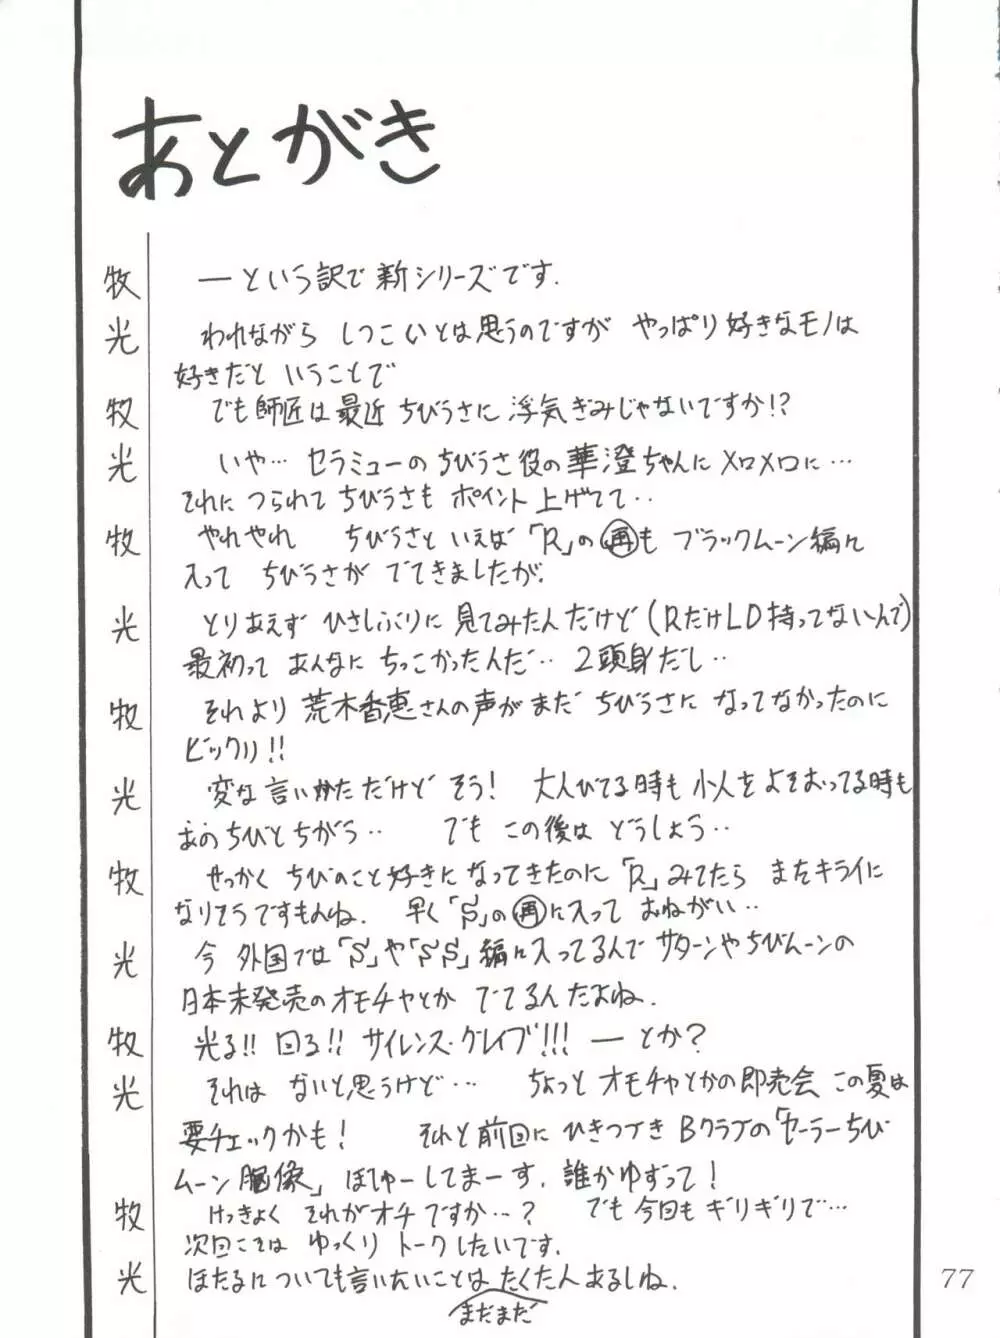 あとがき
牧 ―という訳で新シリーズです.
光 われながら しつこいとは思うのですが やっぱり好きなモノは
好きだと いうことで
牧 でも師匠は最近 ちびうさに 浮気ぎみじゃないですか!?
光 いや… セラミューの ちびうさ役の華澄ちゃんに メロメロに…
それに つられて ちびうさも ポイント上げてて‥
牧 やれやれ ちびうさと いえば 「R」の㊢も ブラックムーン編に
入って ちびうさが でてきましたが.
光 とりあえず ひさしぶりに 見てみたんだけど (RだけLD持ってないんで)
最初って あんなに ちっこかったんだ‥ 2頭身だし‥
牧 それより 荒木香恵さんの声が まだ ちびうさに なってなかったのに
ビックリ!!
光 変な言いかただけど そう! 大人びてる時も 小人をよそおってる時も
あのちびとちがう‥ でも この後は どうしよう‥
牧 せっかく ちびのこと好きになってきたのに 「R」みてたら またキライに
なりそうですもんね. 早く「S」の再に入って おねがい‥
光 今 外国では「S」や「SS」編に入ってるんで サターンやちびムーンの
日本未発売のオモチャとか でてるんだよね.
牧 光る!! 回る!! サイレンス・グレイブ!!! ― とか?
光 それは ないと思うけど… ちょっと オモチャとかの即売会 この夏は
要チェックかも! それと前回に ひきつづき Bクラブの「セーラーちび
ムーン胸像」 ぼしゅーしてまーす. 誰かゆずって!
牧 けっきょく それがオチですか…? でも今回も ギリギリで…
次回こそは ゆっくり トークしたいです.
光 ほたるについても言いたいことは たくさん あるしね.
まだまだ
77